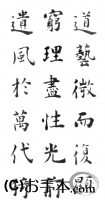 道藝微而復顯
窮理盡性光
遺風於萬代
(C)お手本.com